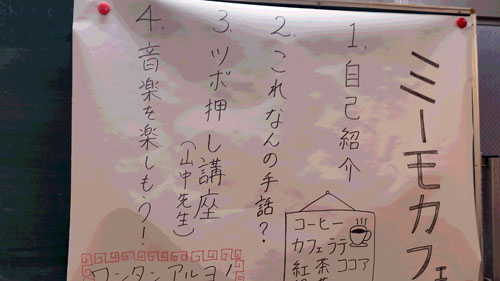 ミーモカフェ
1. 自己紹介
2. これなんの手話?
3. ツボ押し講座
(山中先生)
4. 音楽を楽しもう!
コーヒー
カフェラテ
紅茶 ココア
ワンタンアルヨ!